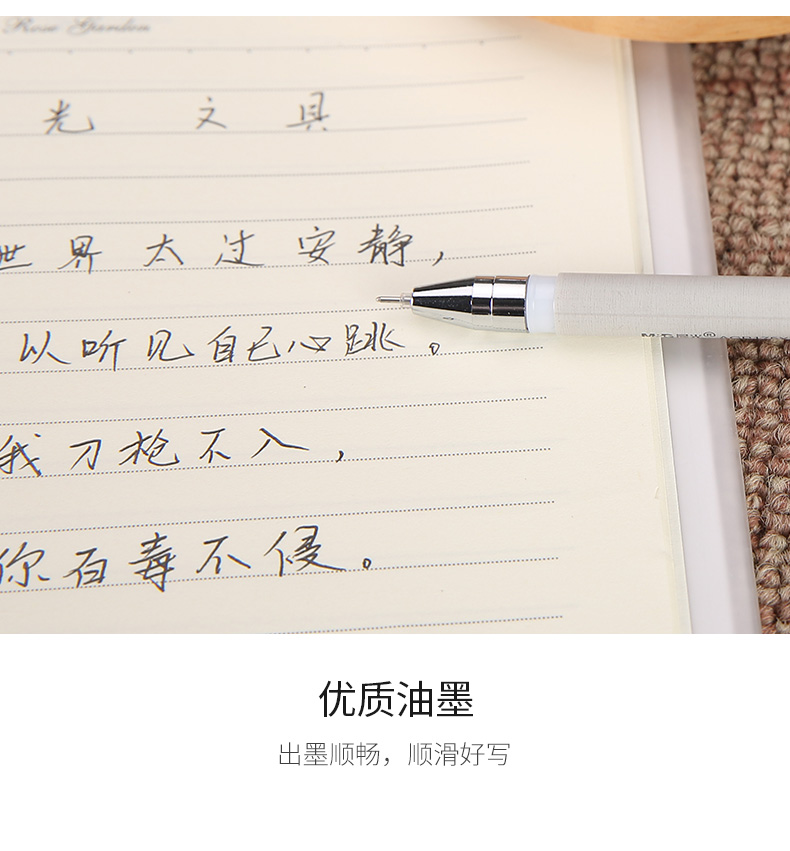 Rose Garden
光 文 具
世界太过安静，
以听见自己心跳。
我刀枪不入，
你百毒不侵。
M&G晨光®
优质油墨
出墨顺畅，顺滑好写